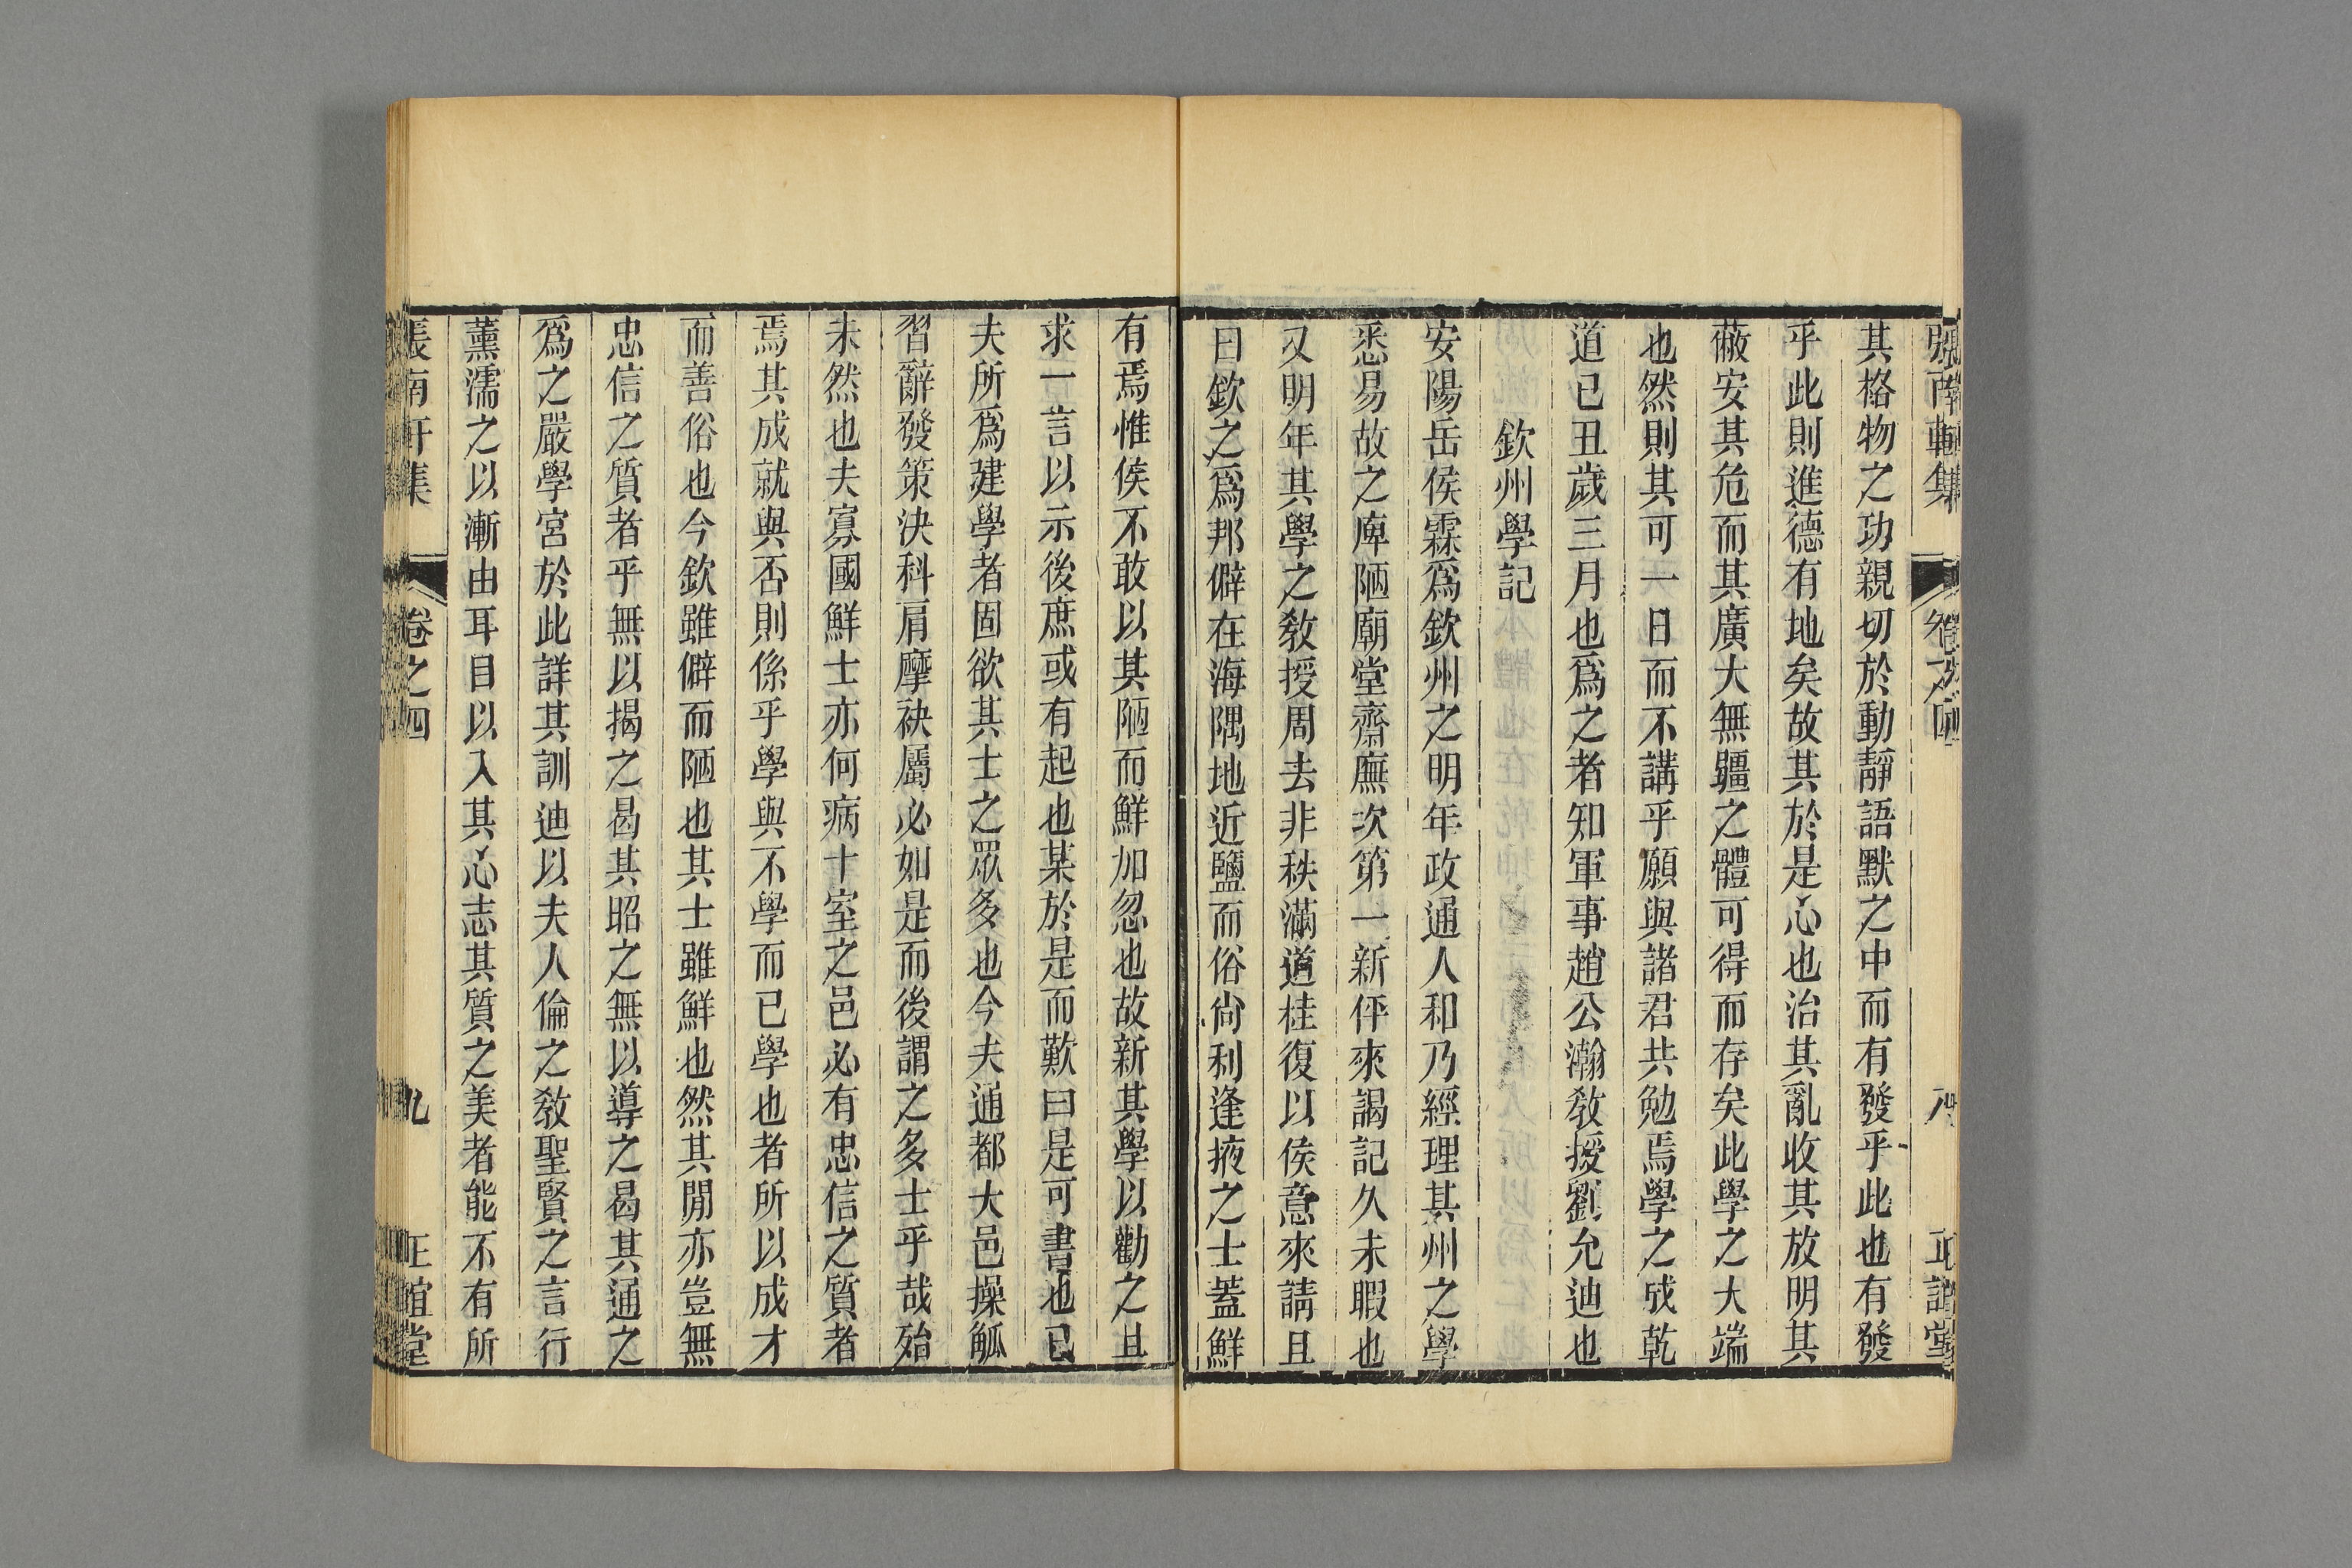 張南軒集 卷之四 八 正誼堂
其格物之功親切於動靜語默之中而有發乎此也有發
乎此則進德有地矣故其於是心也治其亂收其放明其
蔽安其危而其廣大無疆之體可得而存矣此學之大端
也然則其可一日而不講乎願與諸君共勉焉學之成乾
道已丑歲三月也爲之者知軍事趙公瀚敎授劉允迪也
欽州學記
安陽岳侯霖爲欽州之明年政通人和乃經理其州之學
悉易故之庳陋廟堂齋廡次第一新伻來謁記久未暇也
又明年其學之敎授周去非秩滿道桂復以侯意來請且
曰欽之爲邦僻在海隅地近鹽而俗尙利逢掖之士蓋鮮
有焉惟侯不敢以其陋而鮮加忽也故新其學以勸之且
求一言以示後庶或有起也某於是而歎曰是可書也已
夫所爲建學者固欲其士之眾多也今夫通都大邑操觚
習辭發策決科肩摩袂屬必如是而後謂之多士乎哉殆
未然也夫寡國鮮士亦何病十室之邑必有忠信之質者
焉其成就與否則係乎學與不學而已學也者所以成才
而善俗也今欽雖僻而陋也其士雖鮮也然其閒亦豈無
忠信之質者乎無以揭之曷其昭之無以導之曷其通之
爲之嚴學宮於此詳其訓迪以夫人倫之敎聖賢之言行
薰濡之以漸由耳目以入其心志其質之美者能不有所
張南軒集 卷之四 九 正誼堂